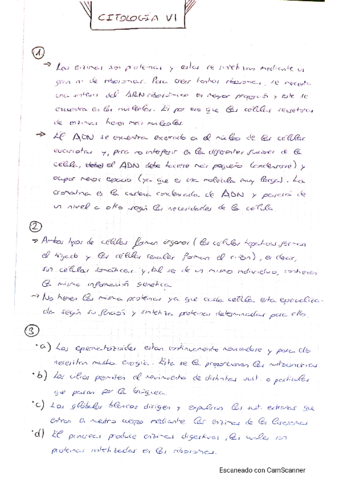 CITOLOGÍA VI
①
→ Las enzimas son proteínas y estas se sintetizan mediante un
gran nº de ribosomas. Para crear tantos ribosomas, se necesita
una síntesis del ARN ribosómico en mayor proporción y este se
encuentra en los nucleolos. Es por eso que las células secretoras
de enzimas tienen más nucleolos.
→ El ADN se encuentra encerrado en el núcleo de las células
eucariotas y, para no interferir en las diferentes funciones de la
célula, el ADN debe hacerse más pequeño (condensarse) y
ocupar menos espacio (ya que es una molécula muy larga). La
cromatina es la cadena condensada de ADN y pasará de
un nivel a otro según las necesidades de la célula.
②
→ Ambos tipos de células forman órganos (las células hepáticas forman
el hígado y las células renales forman el riñón), es decir,
son células somáticas y, al ser de un mismo individuo, contienen
la misma información genética.
→ No tienen las mismas proteínas ya que cada célula está especializa-
da según su función y sintetiza proteínas determinadas para ello.
③
• a) Los espermatozoides están continuamente moviéndose y para ello
necesitan mucha energía. Esta se la proporcionan las mitocondrias
• b) Los cilios permiten el movimiento de distintas sust. o partículas
que pasan por la tráquea.
• c) Los glóbulos blancos digieren y expulsan las sust. extrañas que
entran a nuestro cuerpo mediante las enzimas de los lisosomas
• d) El páncreas produce enzimas digestivas, las cuales son
proteínas sintetizadas en los ribosomas.
Escaneado con CamScanner